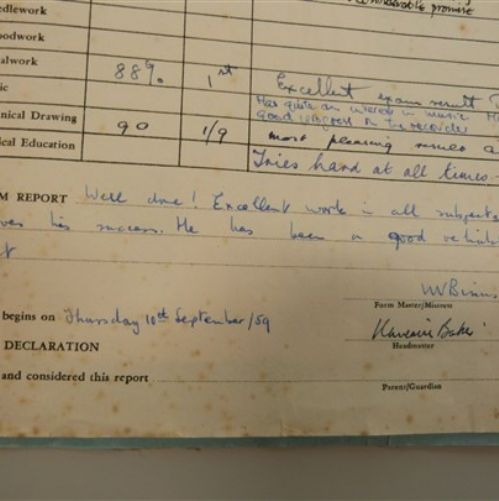 edlework
considerable promise
oodwork
alwork 88% 1st Excellent exam result
ic Has quite an interest in music.
good progress on the recorder
nical Drawing 90 1/9 most pleasing
ical Education Tries hard at all times.
M REPORT Well done! Excellent work in all subjects
his success. He has been a good
t
begins on Thursday 10th September/59
Form Master/Mistress
Baker
Headmaster
DECLARATION
and considered this report
Parent/Guardian